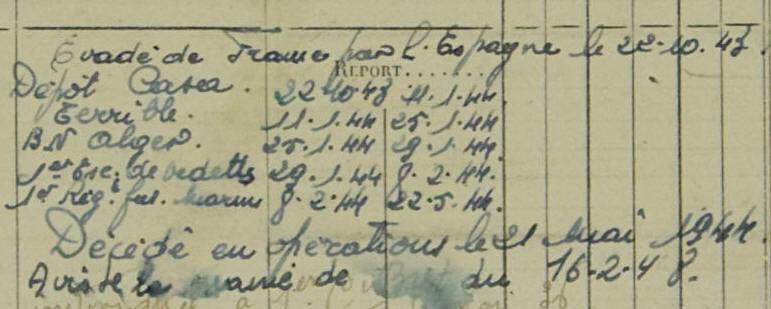 Evadé de France par l'Espagne le 22-10.43.
REPORT........
Dépôt Casa. 22-10-43 11.1.44.
Terrible. 11.1.44 25.1.44
BN Alger. 25.1.44 29.1.44.
1ere Esc. de vedettes 29.1.44 8.2.44.
1er Reg.t fus. marins 8.2.44 22.5.44.
Décédé en opérations le 21 Mai 1944.
de du 16-2-48.